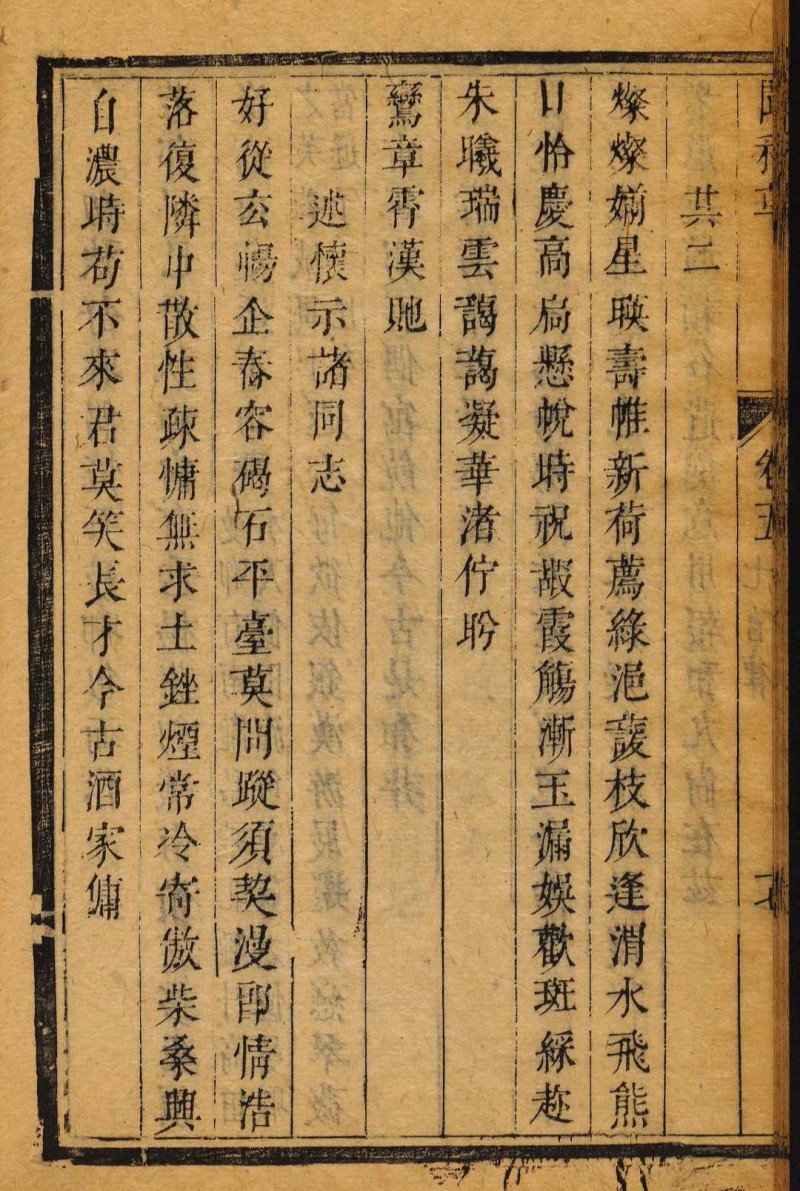 卷五
其二
燦燦嫡星暎壽帷新荷薦綠浥蘐枝欣逢渭水飛熊
日恰慶高扃懸帨時祝嘏霞觴漸玉漏娛歡斑綵趂
朱曦瑞雲靄靄凝華渚佇盻
鸞章霄漢貤
述懷示諸同志
好從玄暢企春容碣石平臺莫問蹤須契漫郎情浩
落復隣中散性疎慵無求土銼煙常冷寄傲柴桑興
自濃時苟不來君莫笑長才今古酒家傭